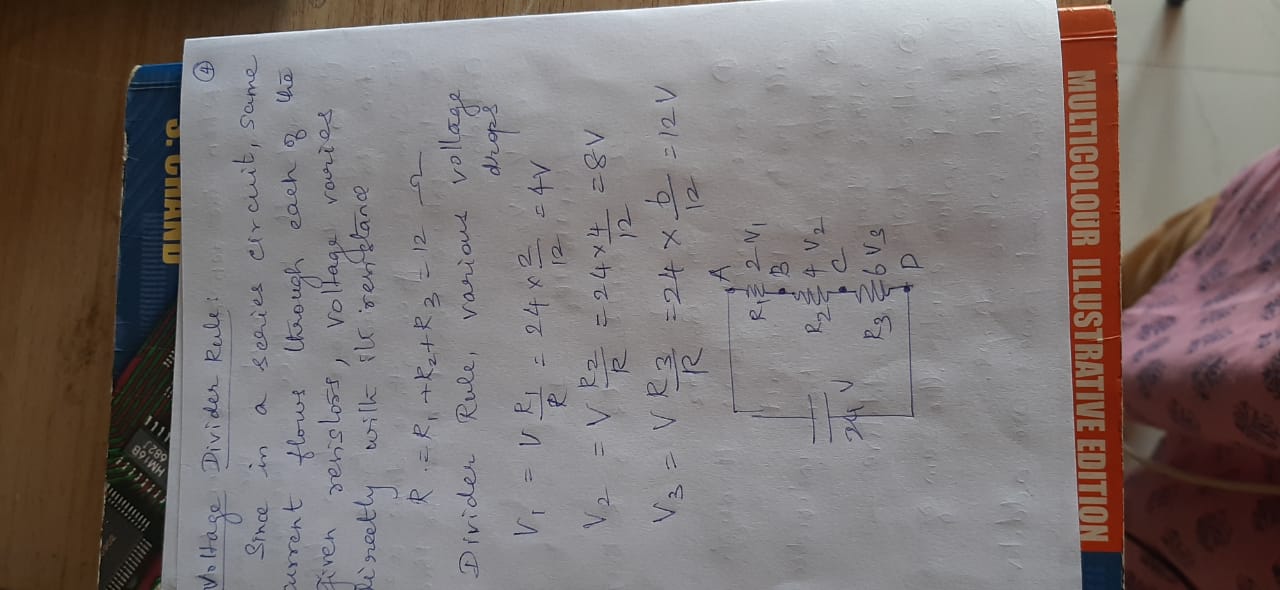 4
Voltage Divider Rule:
Since in a series circuit, same
current flows through each of the
given resistors, voltage varies
directly with its resistance
R = R1 + R2 + R3 = 12 Ω
Divider Rule, various voltage
drops
V1 = V R1/R = 24 × 2/12 = 4V
V2 = V R2/R = 24 × 4/12 = 8V
V3 = V R3/R = 24 × 6/12 = 12V
A
R1 2 V1
B
R2 4 V2
C
R3 6 V3
D
24 V
S. CHAND
MULTICOLOUR ILLUSTRATIVE EDITION
HM16B